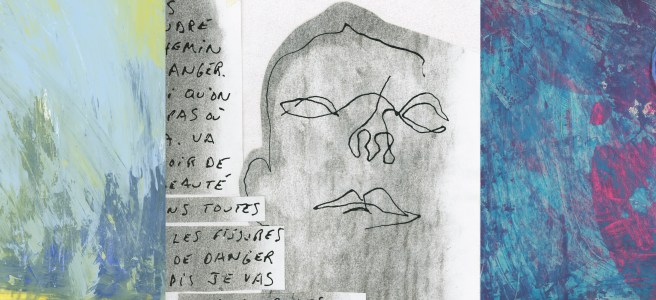 S
UDRE
HEMIN
ANGER.
I QU'ON
PAS OÙ
A. VA
OIR DE
EAUTÉ
NS TOUTES
LES FISSURES
DE DANGER
DIS JE VAS